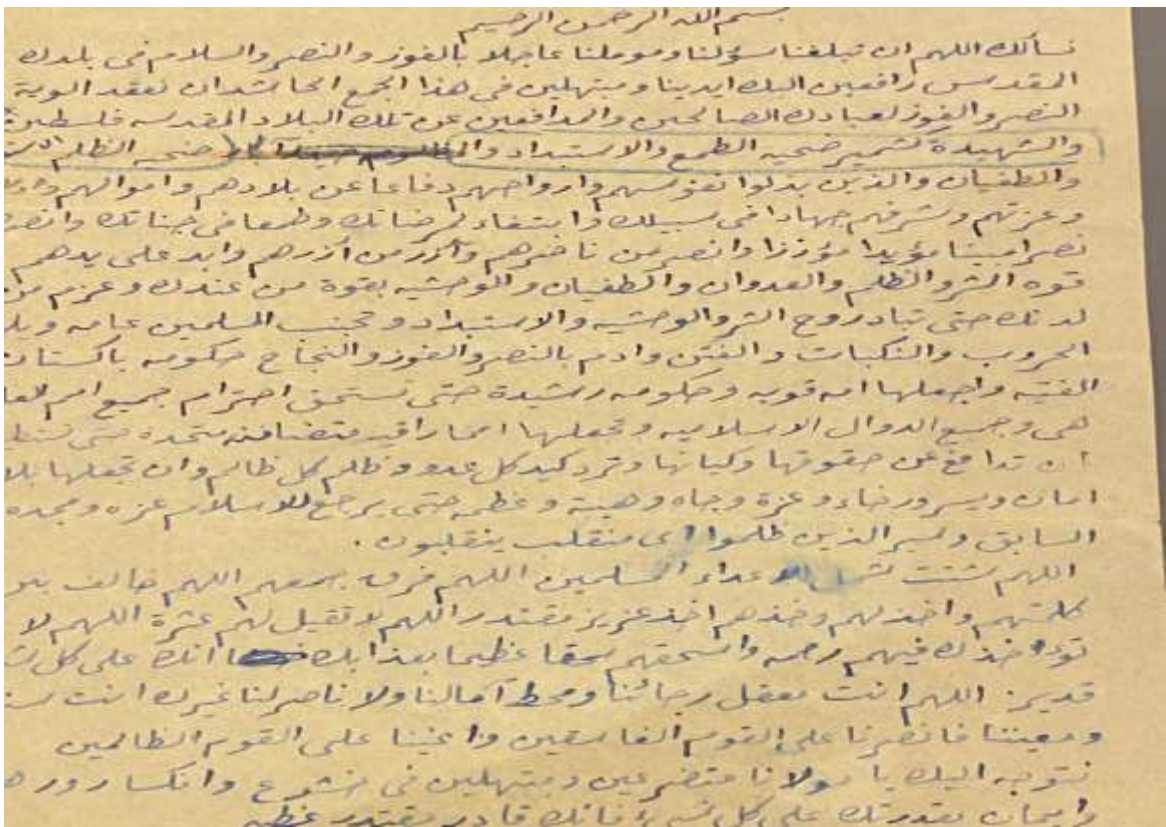 بسم الله الرحمن الرحيم
نسألك اللهم ان تبلغنا سؤلنا وموملنا عاجلا بالفوز والنصر والسلام فى بلدك
المقدس رافعين اليك ايدينا ومبتهلين فى هذا الجمع الحاشد ان تعقد الوية
النصر والفوز لعبادك الصالحين والمدافعين عن تلك البلاد المقدسه فلسطين
والشهيدة كشمير ضحيه الطمع والاستبداد وال ضحيه الظلم
والطغيان والذين بذلوا نفوسهم وارواحهم دفاعا عن بلادهم واموالهم
وعزتهم وشرفهم جهادا فى سبيلك وابتغاء لرضاتك وطمعا فى جناتك وانصر
نصرا مبينا مؤيدا مؤزرا وانصر من ناصرهم وآزر من آزرهم وابد على يدهم
قوه الشر والظلم والعدوان والطغيان والوحشيه بقوة من عندك وعزم من
لدنك حتى تباد روح الشر والوحشيه والاستبداد وتجنب المسلمين عامه
الحروب والنكبات والفتن وادم بالنصر والفوز والنجاح حكومه باكستان
الفتيه واجعلها امه قويه وحكومه رشيدة حتى تستحق احترام جميع امم
هى وجميع الدوال الاسلاميه وتجعلها امما راقيه متضامنه متحده حتى
ان تدافع عن حقوقها وكيانها وترد كيد كل عدو وظلم كل ظالم وان تجعلها
امان ويسر ورخاء وعزة وجاه وهيبة وعظمه حتى يرجع للاسلام عزه ومجده
السابق الذين ظلموا اى منقلب ينقلبون .
اللهم شتت شمل اعداء المسلمين اللهم فرق جمعهم اللهم خالف
كلمتهم واخذلهم وخذهم اخذ عزيز مقتدر اللهم لا تقيل لهم عثرة اللهم لا
فيهم رحمه واسحقهم سحقا عظيما بعذابك انك على كل
قدير . اللهم انت معقل رجائنا ومحط آمالنا ولا ناصر لنا غيرك انت
ومعيننا فانصرنا على القوم الفاسقين واعينا على القوم الظالمين
نتوجه اليك يا مولانا متضرعين ومبتهلين فى خشوع وانكسار
وايمان بقدرتك على كل شىء فانك قادر مقتدر